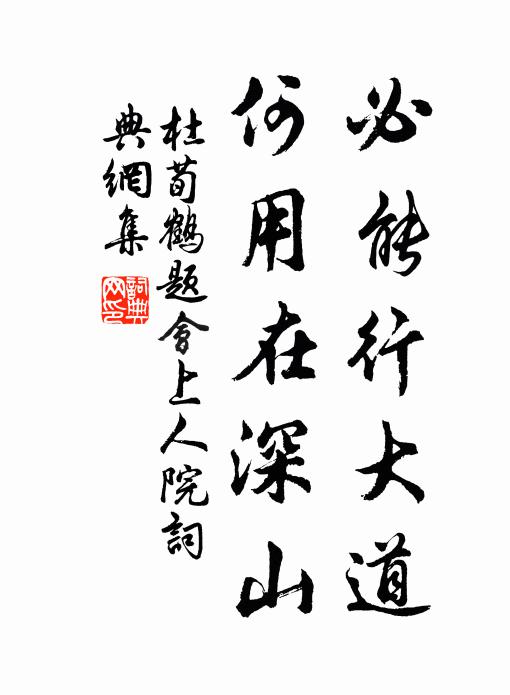 必能行大道
何用在深山
杜荀鶴題會上人院詞
典網集
詞典
网印